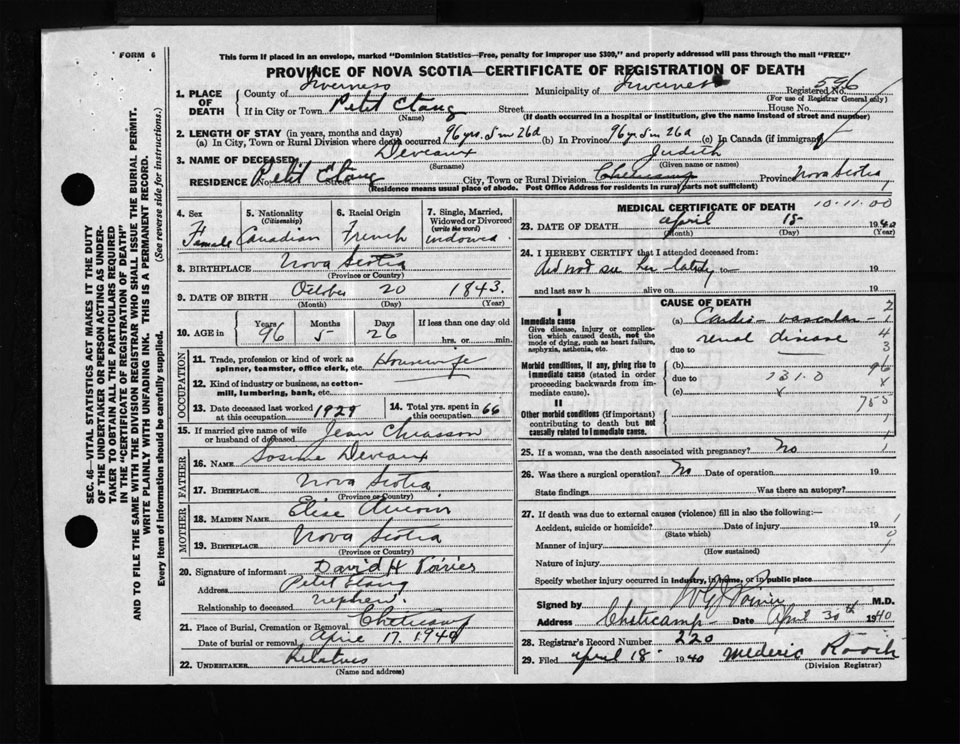 FORM 6
This form if placed in an envelope, marked "Dominion Statistics—Free, penalty for improper use $300," and properly addressed will pass through the mail "FREE"
PROVINCE OF NOVA SCOTIA—CERTIFICATE OF REGISTRATION OF DEATH
SEC. 46—VITAL STATISTICS ACT MAKES IT THE DUTY
OF THE UNDERTAKER OR PERSON ACTING AS UNDER-
TAKER TO OBTAIN ALL THE PARTICULARS REQUIRED
IN THE "CERTIFICATE OF REGISTRATION OF DEATH"
AND TO FILE THE SAME WITH THE DIVISION REGISTRAR WHO SHALL ISSUE THE BURIAL PERMIT.
WRITE PLAINLY WITH UNFADING INK. THIS IS A PERMANENT RECORD.
Every item of information should be carefully supplied. (See reverse side for instructions.)
1. PLACE OF DEATH
County of Inverness Municipality of Inverness Registered No. 596
(For use of Registrar General only)
If in City or Town Petit Etang Street House No.
(Name) (If death occurred in a hospital or institution, give the name instead of street and number)
2. LENGTH OF STAY (in years, months and days)
(a) In City, Town or Rural Division where death occurred 96 yrs. 5 m 26 d (b) In Province 96 yrs 5 m 26 d (c) In Canada (if immigrant)
3. NAME OF DECEASED Deveaux Judith
(Surname) (Given name or names)
RESIDENCE No. Petit Etang Street City, Town or Rural Division Cheticamp Province Nova Scotia
(Residence means usual place of abode. Post Office Address for residents in rural parts not sufficient)
4. Sex
Female
5. Nationality
(Citizenship)
Canadian
6. Racial Origin
French
7. Single, Married,
Widowed or Divorced
(write the word)
widowed
8. BIRTHPLACE Nova Scotia
(Province or Country)
9. DATE OF BIRTH October 20 1843.
(Month) (Day) (Year)
10. AGE in
Years Months Days If less than one day old
96 5 26 hrs. or min.
OCCUPATION
11. Trade, profession or kind of work as
spinner, teamster, office clerk, etc. Housewife
12. Kind of industry or business, as cotton-
mill, lumbering, bank, etc.
13. Date deceased last worked 1929
at this occupation
14. Total yrs. spent in 66
this occupation
15. If married give name of wife
or husband of deceased Jean Chiasson
FATHER
16. NAME Deveaux
17. BIRTHPLACE Nova Scotia
(Province or Country)
MOTHER
18. MAIDEN NAME Elise Aucoin
19. BIRTHPLACE Nova Scotia
(Province or Country)
20. Signature of informant David H Poirier
Address Petit Etang
Relationship to deceased nephew.
21. Place of Burial, Cremation or Removal Cheticamp
Date of burial or removal April 17. 1940
22. UNDERTAKER Relatives
(Name and address)
MEDICAL CERTIFICATE OF DEATH 10.11.00
23. DATE OF DEATH April 15 1940
(Month) (Day) (Year)
24. I HEREBY CERTIFY that I attended deceased from:
did not see her lately to 19
and last saw h alive on 19
CAUSE OF DEATH
I
Immediate cause
Give disease, injury or complica-
tion which caused death, not the
mode of dying, such as heart failure,
asphyxia, asthenia, etc.
(a) Cardio-vascular-
renal disease
due to
Morbid conditions, if any, giving rise to
immediate cause (stated in order
proceeding backwards from im-
mediate cause).
(b) 96
due to 131.0
(c) x
II
Other morbid conditions (if important)
contributing to death but not
causally related to immediate cause.
25. If a woman, was the death associated with pregnancy? No
26. Was there a surgical operation? No Date of operation 19
State findings Was there an autopsy?
27. If death was due to external causes (violence) fill in also the following:—
Accident, suicide or homicide? Date of injury 19
(State which)
Manner of injury
(How sustained)
Nature of injury
Specify whether injury occurred in industry, in home, or in public place
Signed by M.D.
Address Cheticamp Date April 30th 1940
28. Registrar's Record Number 220
29. Filed April 18 1940 Mederic
(Division Registrar)